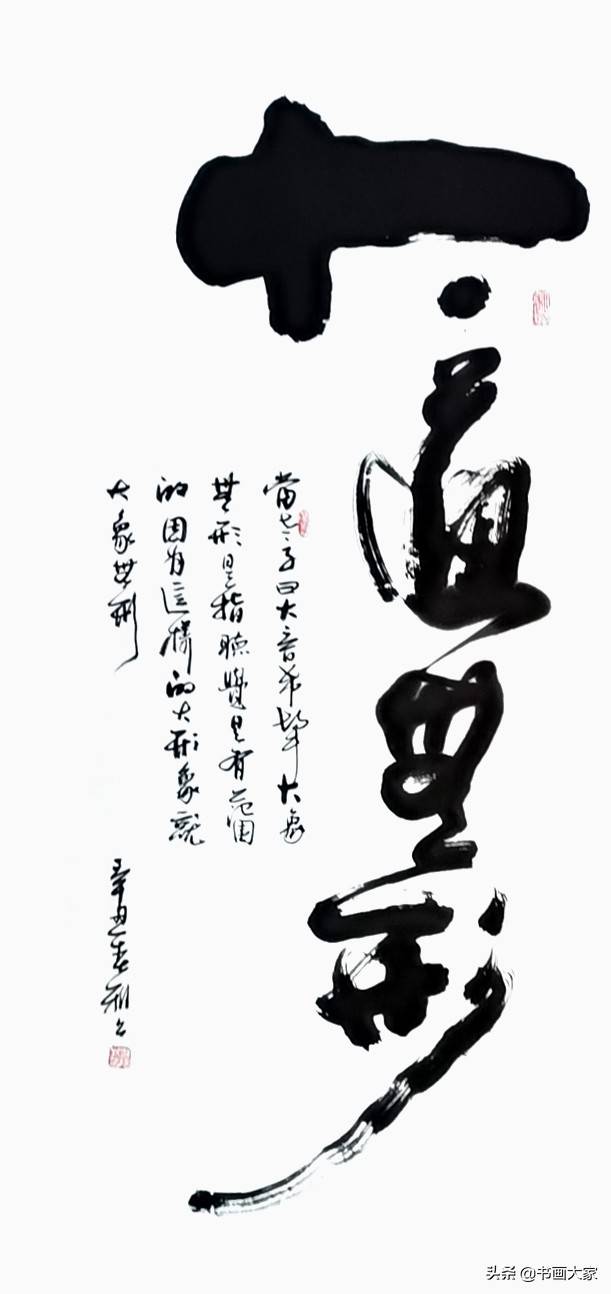 大象無形
當老子曰大音希聲大象
無形是指聽覺是有范围
的因为這樣的大形象就
大象無形
辛丑春
头条 @书画大家